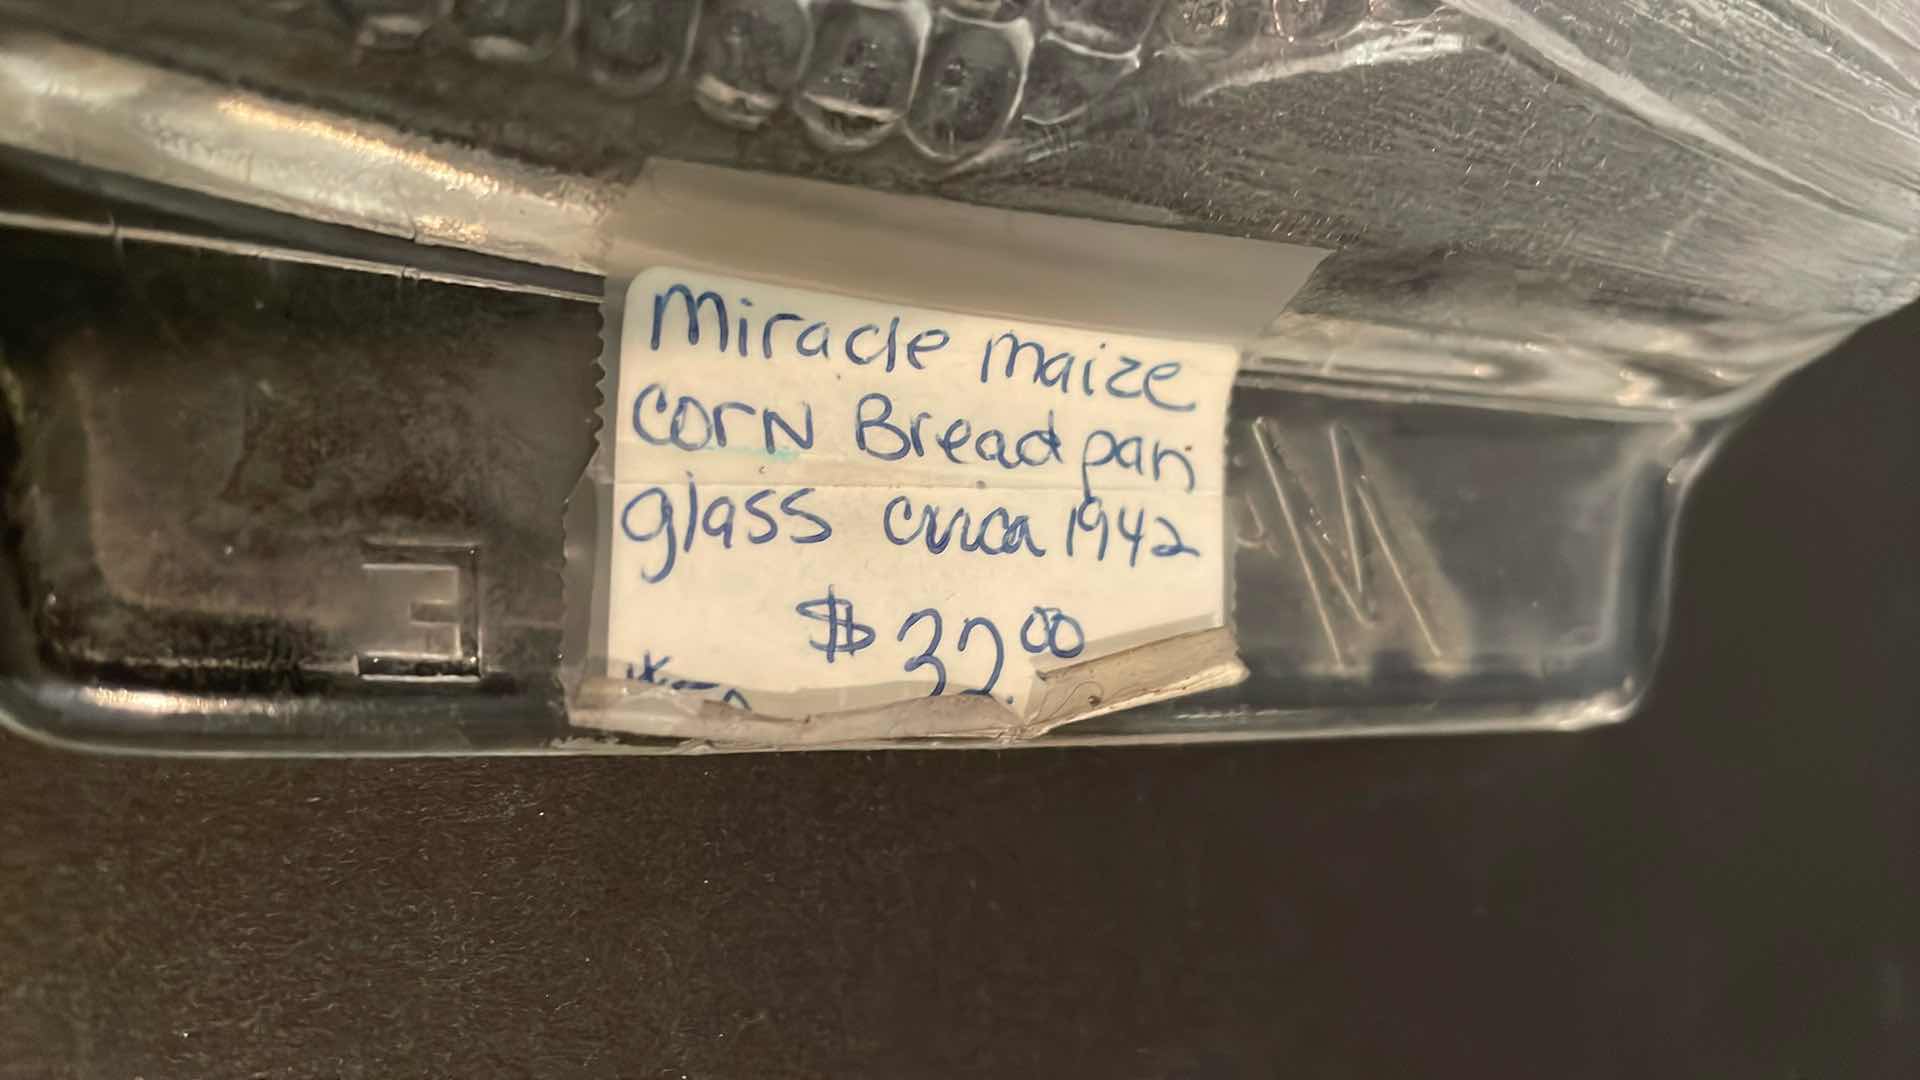 Miracle maize
corn Bread pan
glass circa 1942
$32.00
E
M